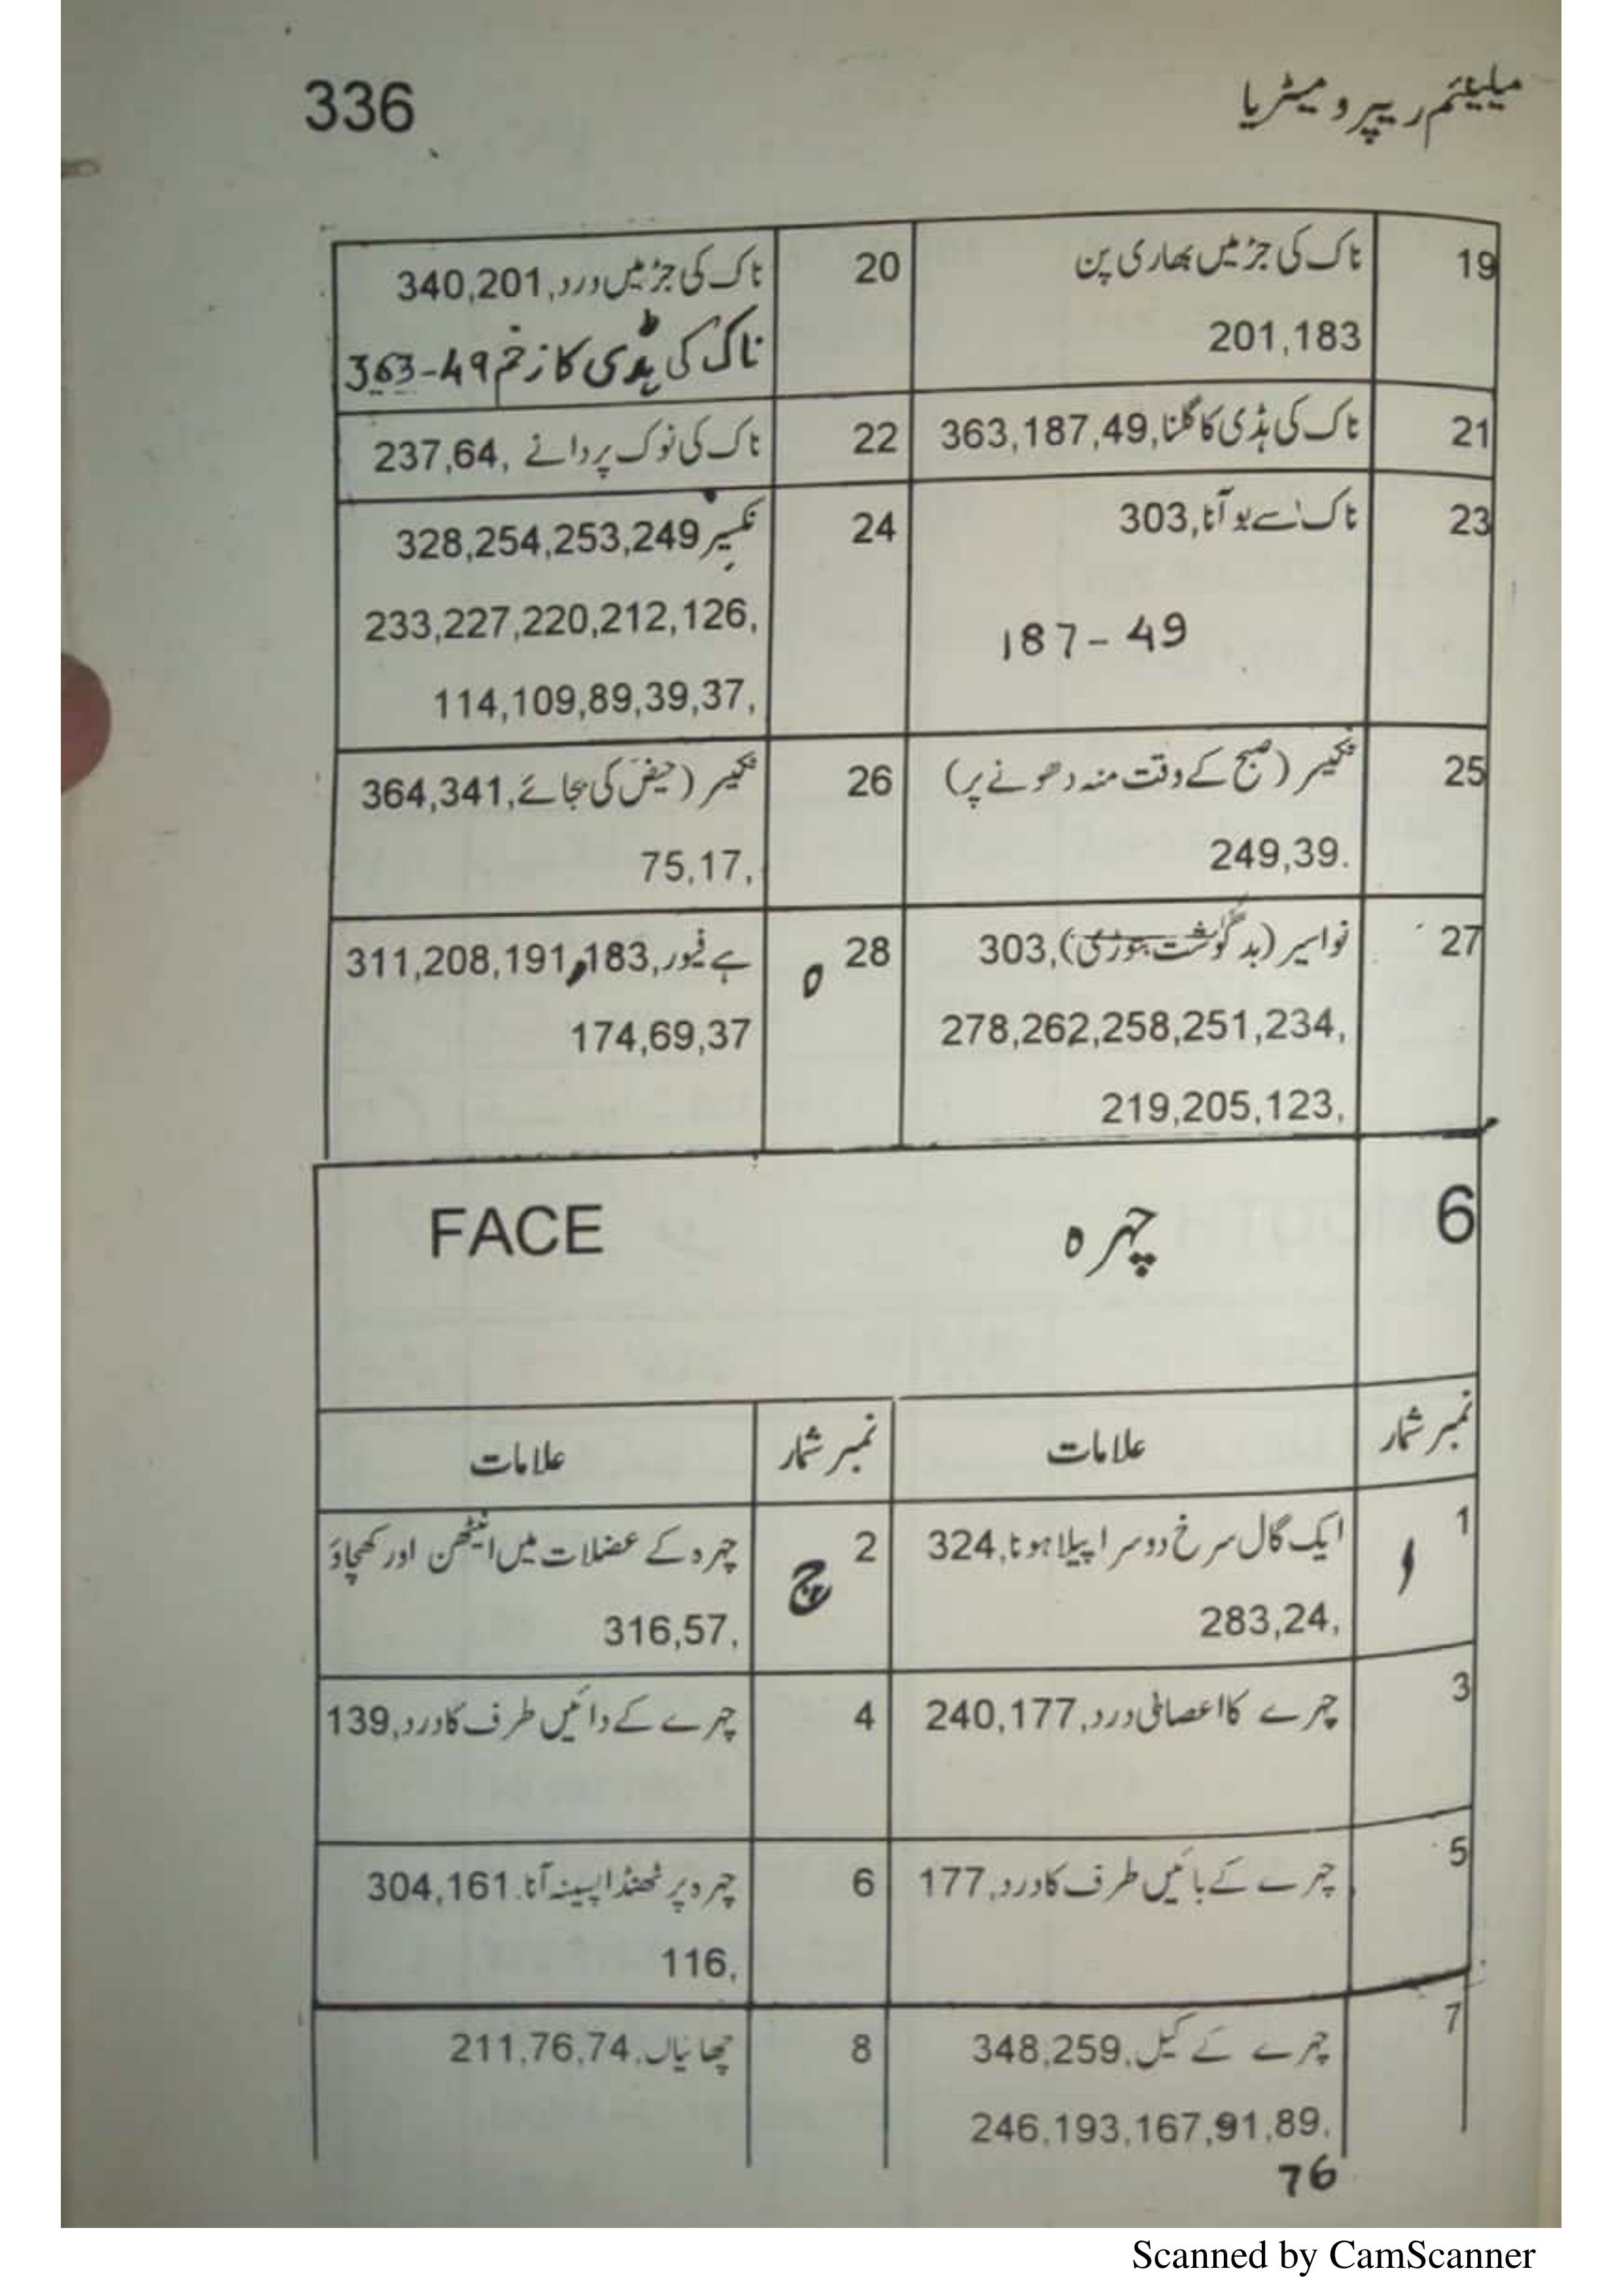 336
میلینئم ریپرومیٹریا
19
ناک کی جڑ میں بھاری پن
201,183
20
ناک کی جڑ میں درد,340,201
ناک کی ہڈی کا زخم 49-363
21
ناک کی ہڈی کا گلنا,363,187,49
22
ناک کی نوک پر دانے ,237,64
23
ناک سے بو آنا,303
187-49
24
نکسیر 328,254,253,249
233,227,220,212,126,
114,109,89,39,37,
25
نکسیر (صبح کے وقت منہ دھونے پر)
249,39.
26
نکسیر (حیض کی بجائے,364,341
75,17,
27
نواسیر (بد گوشت بتوڑی),303
278,262,258,251,234,
219,205,123,
28
ہ
ہے فیور,311,208,191,183
174,69,37
6
چہرہ
FACE
نمبر شمار
علامات
نمبر شمار
علامات
1
ا
ایک گال سرخ دوسرا پیلا ہونا,324
283,24,
2
چ
چہرہ کے عضلات میں اینٹھن اور کھچاؤ
316,57,
3
چہرے کا اعصابی درد,240,177
4
چہرے کے دائیں طرف کا درد,139
5
چہرے کے بائیں طرف کا درد,177
6
چہرہ پر ٹھنڈا پسینہ آنا.304,161
116,
7
چہرے کے کیل,348,259
246,193,167,91,89,
76
8
چھائیاں,211,76,74
Scanned by CamScanner